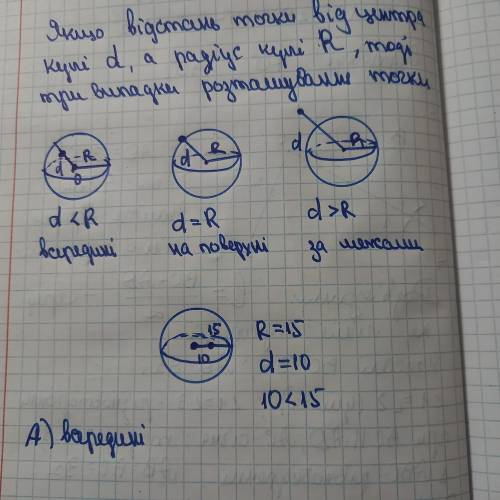 Якщо відстань точки від центра
кулі d, а радіус кулі R, тоді
три випадки розташування точки
d R O
d R
d R
d < R
d = R
d > R
всередині
на поверхні
за межами
15
10
R = 15
d = 10
10 < 15
А) всередині